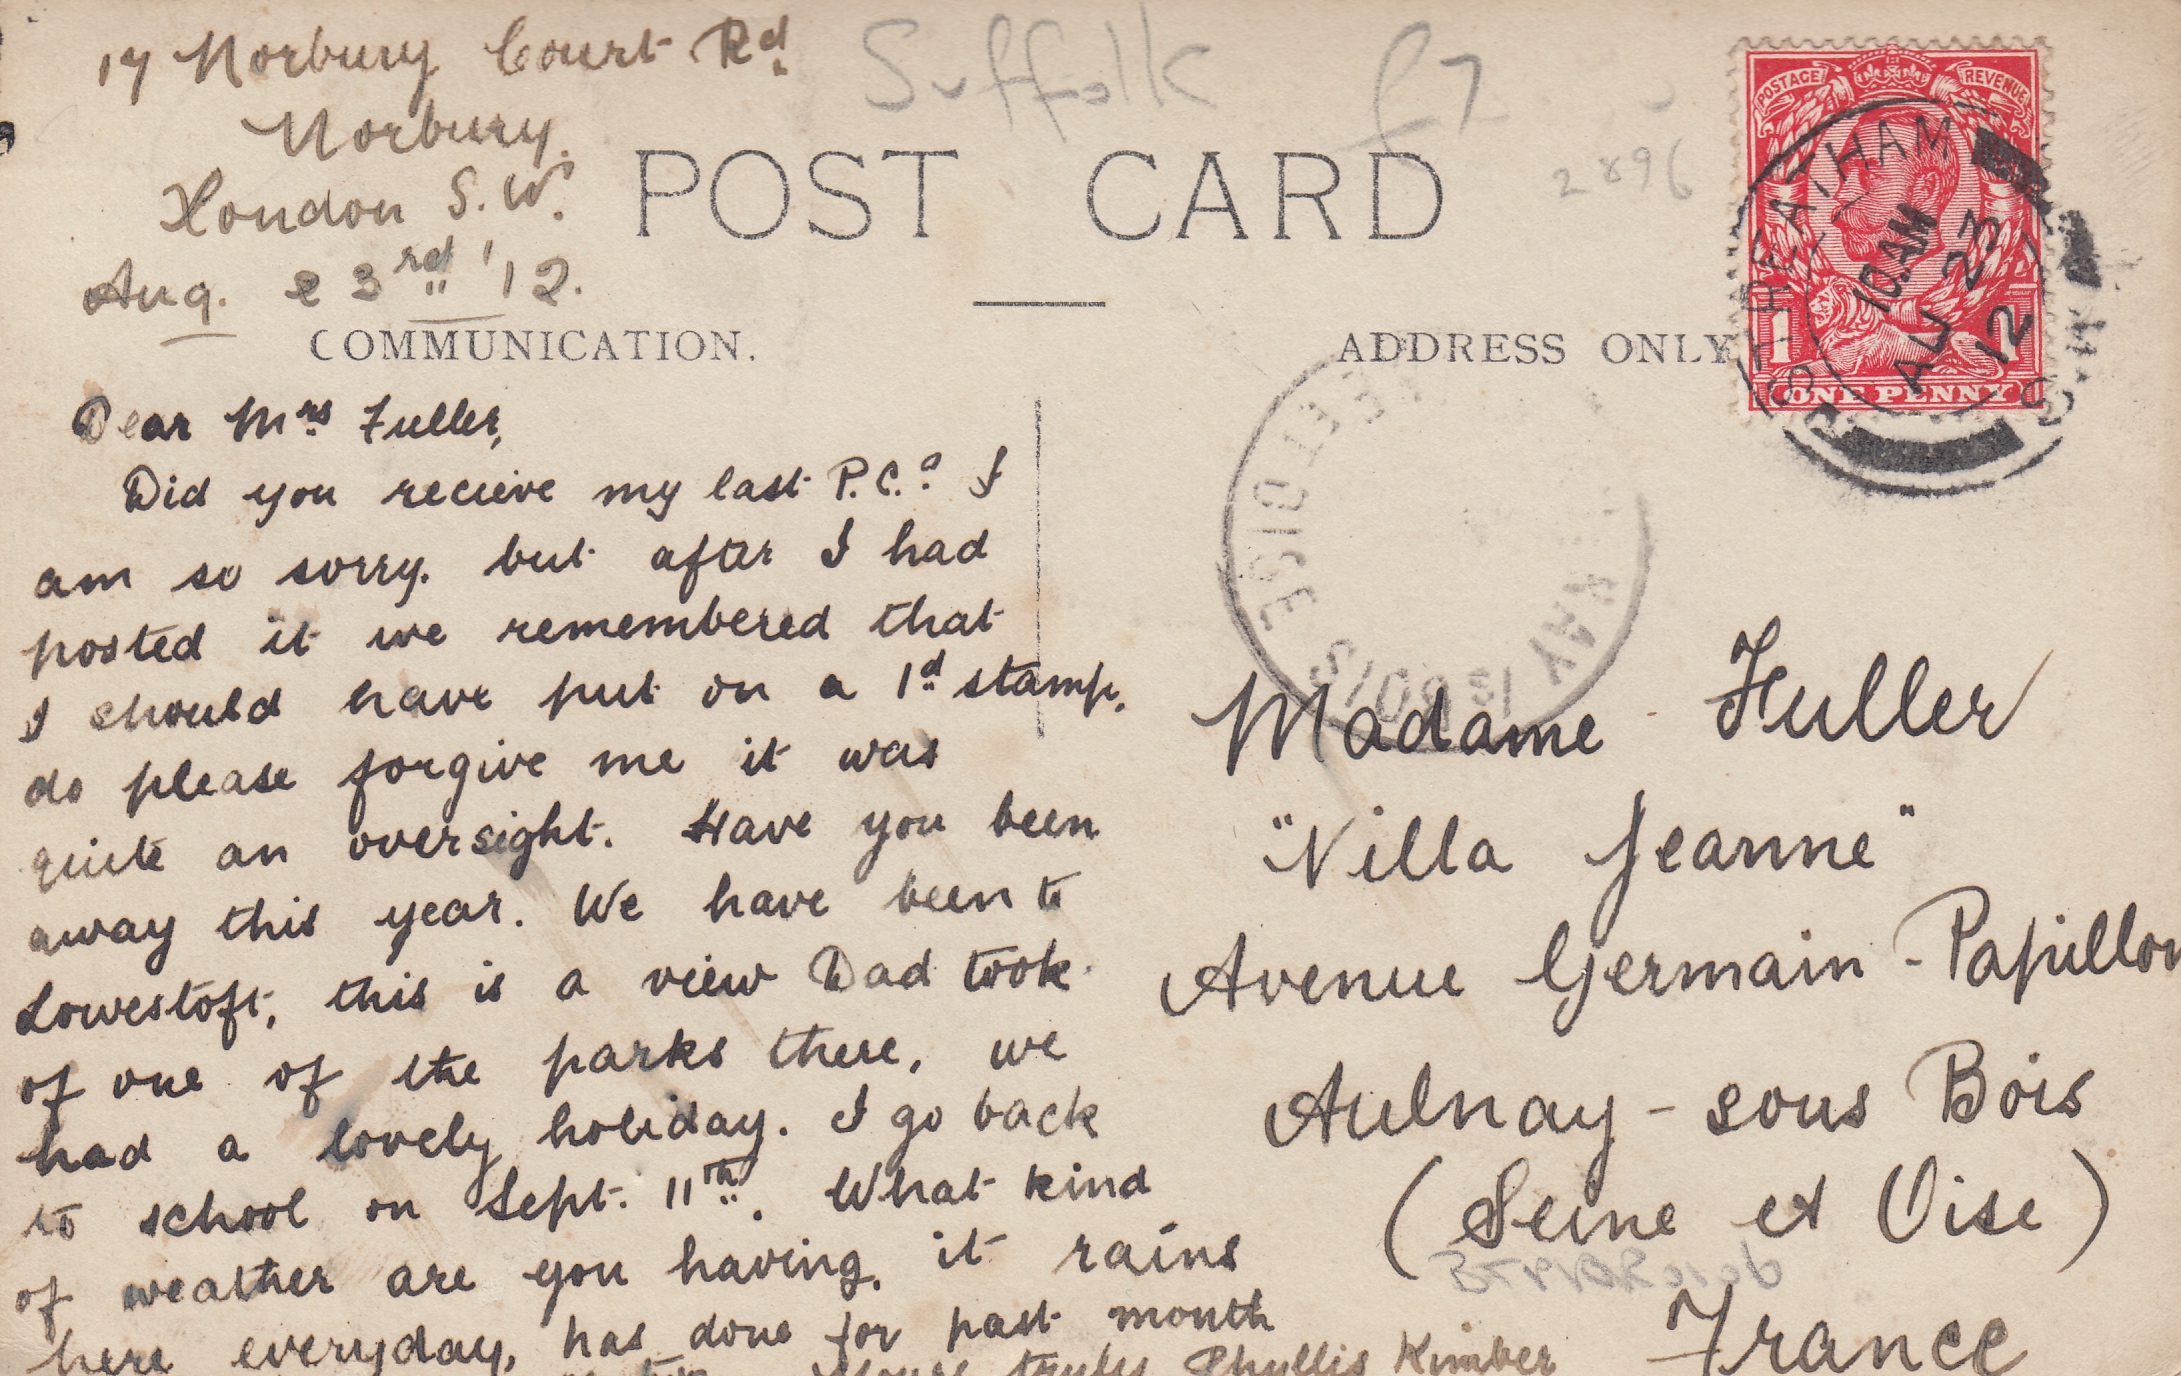 17 Norbury Court Rd.
Norbury.
London S.W.
Aug. 23rd '12.
Suffolk
£7
2896
POST CARD
COMMUNICATION.
ADDRESS ONLY
POSTAGE REVENUE
1 1
ONE PENNY
STREATHAM
10 AM
AU 23
12
AY S BOIS
SEINE ET OISE
Dear Mrs Fuller,
Did you recieve my last P.C.? I
am so sorry. but after I had
posted it we remembered that
I should have put on a 1d stamp.
do please forgive me it was
quite an oversight. Have you been
away this year. We have been to
Lowestoft, this is a view Dad took
of one of the parks there, we
had a lovely holiday. I go back
to school on Sept. 11th. What kind
of weather are you having, it rains
here everyday, has done for past month
Yours truly Phyllis Kimber
Madame Fuller
"Villa Jeanne"
Avenue Germain-Papillon
Aulnay-sous Bois
(Seine et Oise)
France